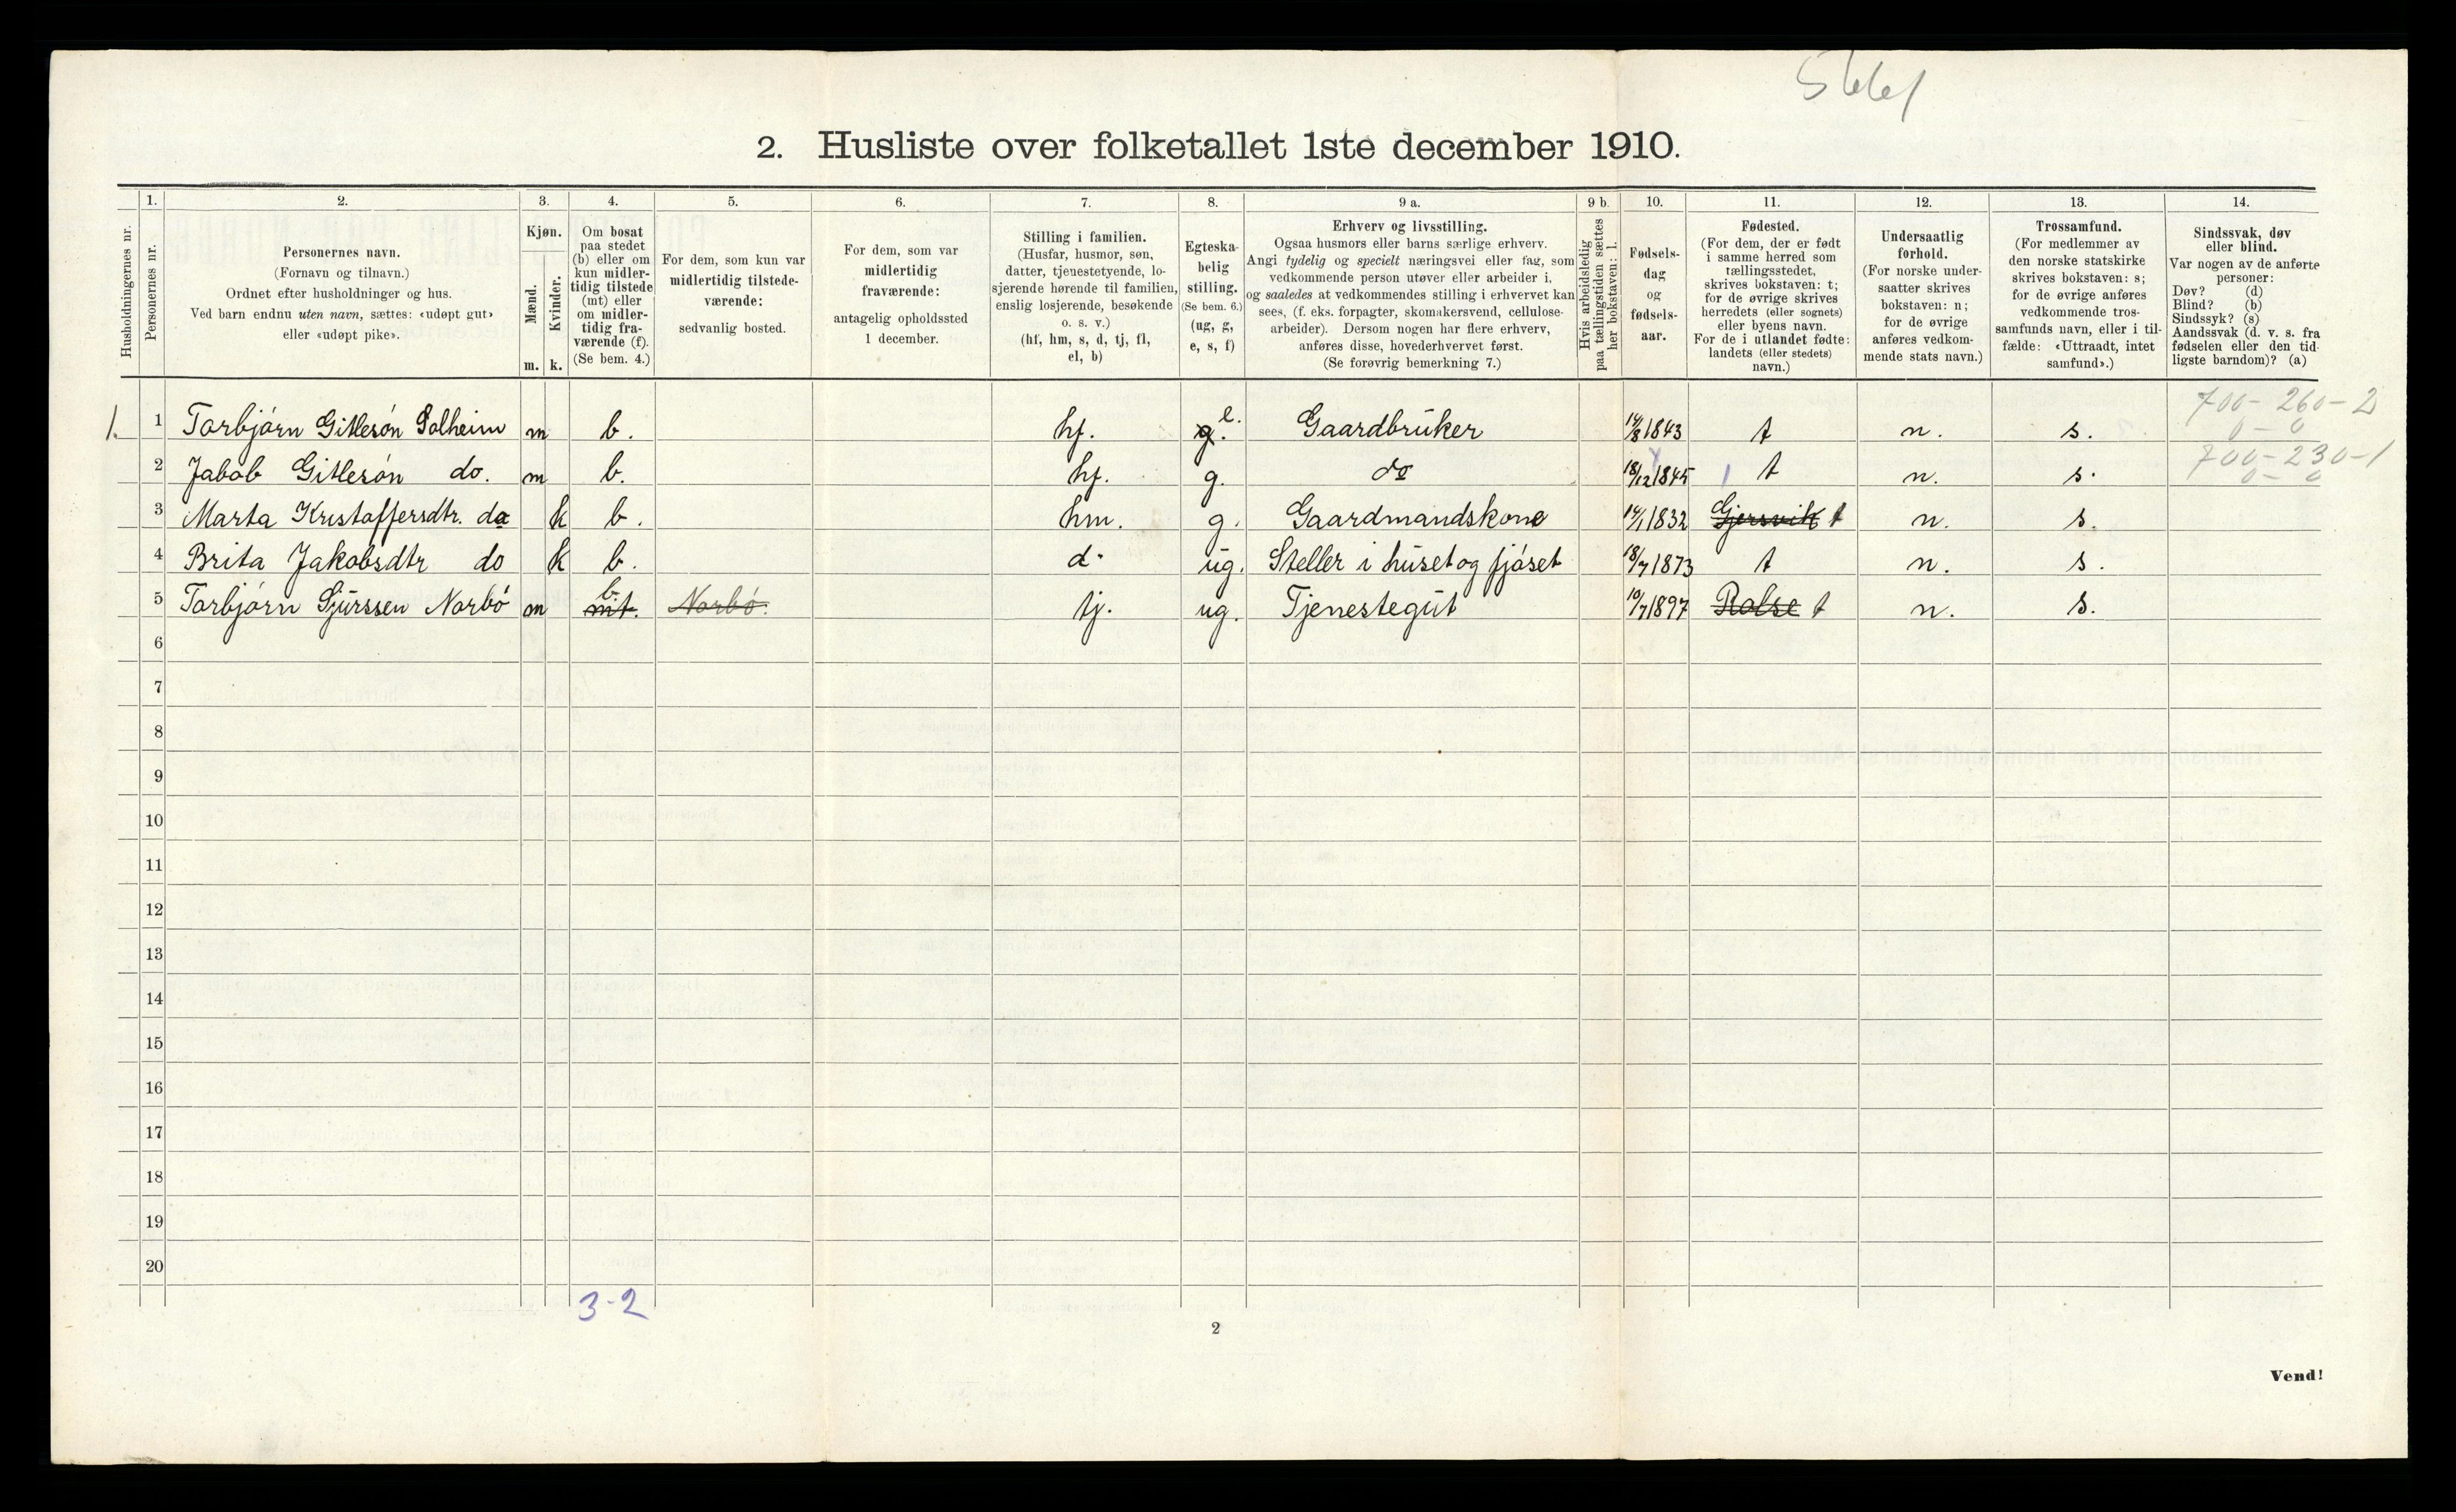 2. Husliste over folketallet 1ste december 1910.
1. 2. 3. 4. 5. 6. 7. 8. 9 a. 9 b. 10. 11. 12. 13. 14.
Husholdningernes nr.
Personernes nr.
Personernes navn.
(Fornavn og tilnavn.)
Ordnet efter husholdninger og hus.
Ved barn endnu uten navn, sættes: «udøpt gut»
eller «udøpt pike».
Kjøn.
Mænd.
Kvinder.
m. k.
Om bosat
paa stedet
(b) eller om
kun midler-
tidig tilstede
(mt) eller
om midler-
tidig fra-
værende (f).
(Se bem. 4.)
For dem, som kun var
midlertidig tilstede-
værende:
sedvanlig bosted.
For dem, som var
midlertidig
fraværende:
antagelig opholdssted
1 december.
Stilling i familien.
(Husfar, husmor, søn,
datter, tjenestetyende, lo-
sjerende hørende til familien,
enslig losjerende, besøkende
o. s. v.)
(hf, hm, s, d, tj, fl,
el, b)
Egteska-
belig
stilling.
(Se bem. 6.)
(ug, g,
e, s, f)
Erhverv og livsstilling.
Ogsaa husmors eller barns særlige erhverv.
Angi tydelig og specielt næringsvei eller fag, som
vedkommende person utøver eller arbeider i,
og saaledes at vedkommendes stilling i erhvervet kan
sees, (f. eks. forpagter, skomakersvend, cellulose-
arbeider). Dersom nogen har flere erhverv,
anføres disse, hovederhvervet først.
(Se forøvrig bemerkning 7.)
Hvis arbeidsledig
paa tællingstiden sættes
her bokstaven: l.
Fødsels-
dag
og
fødsels-
aar.
Fødested.
(For dem, der er født
i samme herred som
tællingsstedet,
skrives bokstaven: t;
for de øvrige skrives
herredets (eller sognets)
eller byens navn.
For de i utlandet fødte:
landets (eller stedets)
navn.)
Undersaatlig
forhold.
(For norske under-
saatter skrives
bokstaven: n;
for de øvrige
anføres vedkom-
mende stats navn.)
Trossamfund.
(For medlemmer av
den norske statskirke
skrives bokstaven: s;
for de øvrige anføres
vedkommende tros-
samfunds navn, eller i til-
fælde: «Uttraadt, intet
samfund».)
Sindssvak, døv
eller blind.
Var nogen av de anførte
personer:
Døv? (d)
Blind? (b)
Sindssyk? (s)
Aandssvak (d. v. s. fra
fødselen eller den tid-
ligste barndom)? (a)
700-260-2
0-0
1. 1 Torbjörn Gitlesön Solheim m b. hf. g. e. Gaardbruker 14/8 1843 t n. s.
700-230-1
0-0
2 Jakob Gitlesön do. m b. hf. g. do 18/12 1845 t n. s.
3 Marta Kristoffersdtr. do k b. hm. g. Gaardmandskone 14/1 1832 Gjersvik t n. s.
4 Brita Jakobsdtr do k b. d. ug. Steller i huset og fjöset 18/7 1873 t n. s.
5 Torbjörn Sjurssen Norbö m mt. b. Norbö. tj. ug. Tjenestegut 10/7 1897 Rolse t n. s.
6
7
8
9
10
11
12
13
14
15
16
17
18
19
20
3-2
2
Vend!